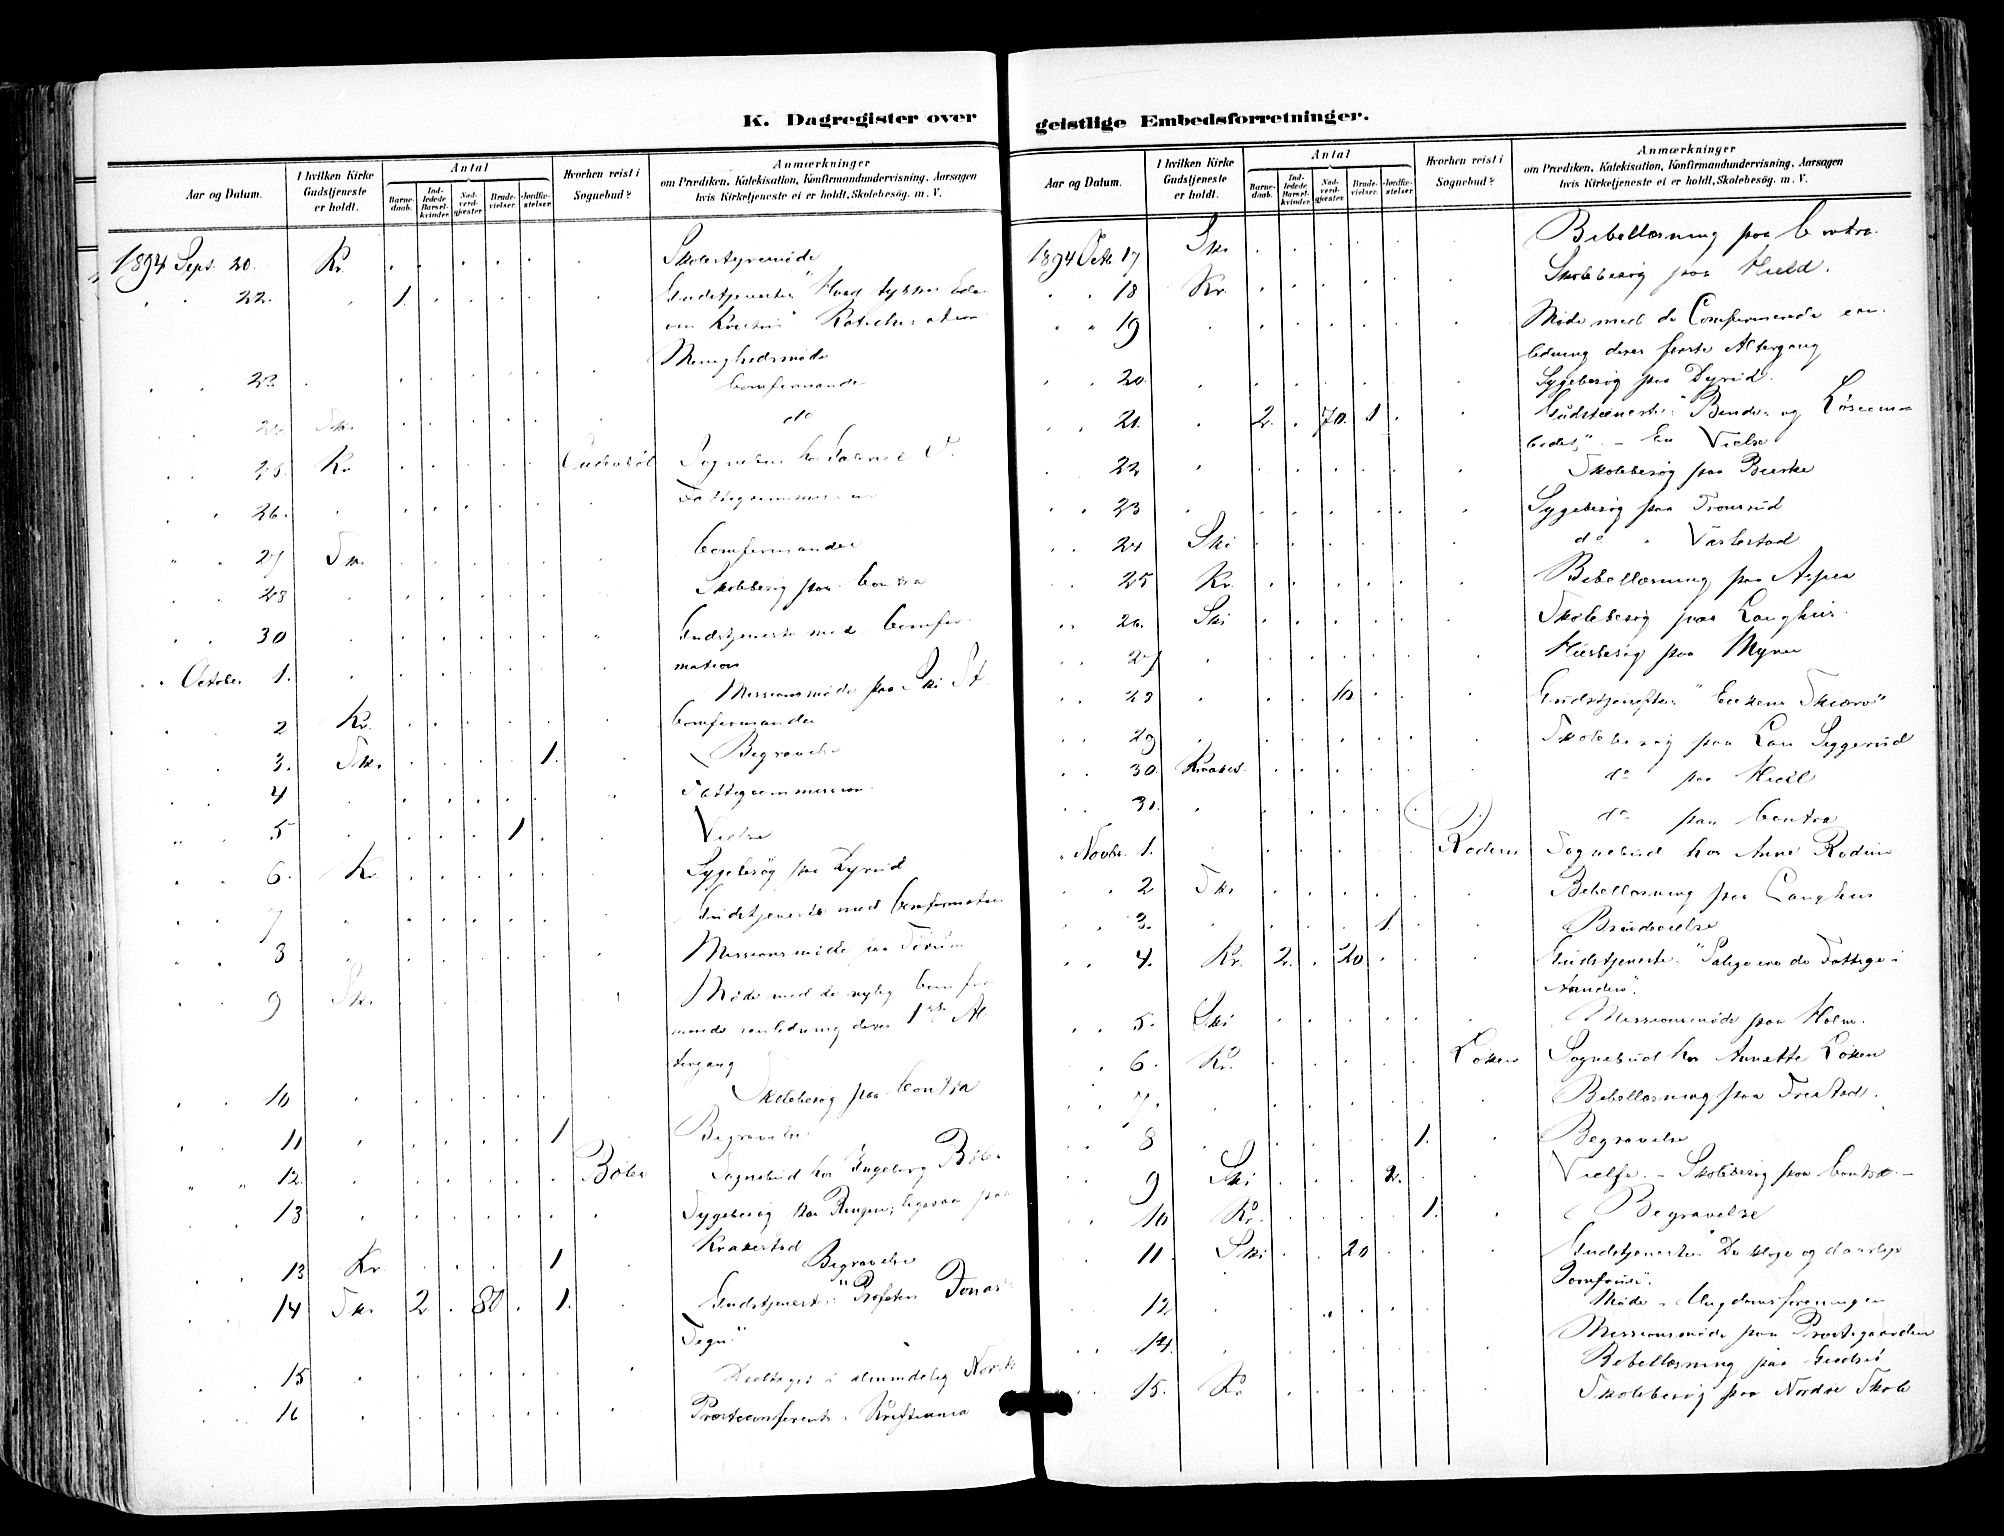 K. Dagregister over
Aar og Datum.
I hvilken Kirke Gudstjeneste er holdt.
Antal
Barnedaab.
Indledede Barselkvinder.
Nadverdgjester.
Brudevielser.
Jordfæstelser.
Hvorhen reist i Sognebud?
Anmærkninger
om Prædiken, Katekisation, Konfirmandundervisning, Aarsagen
hvis Kirketjeneste ei er holdt, Skolebesøg. m. V.
1894 Sept. 20. Kr. Skolestyremøde
22. 1. Gudstjeneste "Hvad tykkes Eder
om Kristus" Katechisation
Menighedsmøde
23. Comfermander
24. Sk. do
25. Kr. Sognebud hos
26. Fattigcommission
27 Sk. Comfermander
28 Skolebesøg paa Contra
30 Gudstjeneste med Comfer-
mation
October 1. Missionsmøde paa Ski St.
2 Kr. Comfermander
3. Sk. 1. Begravelse
4 Fattigcommission.
5 1 Vielse
6. Kr Sygebesøg paa Dyrud
7 Gudstjeneste med Comfermation
8 Missionsmøde paa
9 Sk. Møde med de nylig Comfer
mande i anledning deres 1ste Al
tergang
10 Skolebesøg paa Contra
11 1 Begravelse
12. Bøler Sognebud hos Ingeborg Bøler
13 Sygebesøg paa ligesaa paa
Krakestad
13 Kr. 1 Begravelse
14 Sk. 2 80 1. Gudstjeneste: "Profeten Jonas
Tegn"
15 Deeltaget i almindelig Norsk
16 Præsteconferents i Kristiania
geistlige Embedsforretninger.
Aar og Datum.
I hvilken Kirke Gudstjeneste er holdt.
Antal
Barnedaab.
Indledede Barselkvinder.
Nadverdgjester.
Brudevielser.
Jordfæstelser.
Hvorhen reist i Sognebud?
Anmærkninger
om Prædiken, Katekisation, Konfirmandundervisning, Aarsagen
hvis Kirketjeneste ei er holdt, Skolebesøg. m. V.
1894 Octb. 17 Ski Bibellæsning paa Contra.
18 Kr. Skolebesøg paa Hield.
19 Møde med de Comfermerede an-
ledning deres første Altergang
20. Sygebesøg paa Dyrud.
21. 2. 70. 1 Gudstjeneste: "Binde- og Løseem-
bedet," - En Vielse
22 Skolebesøg paa Bierke
23 Sygebesøg paa Tronsrud
24 Ski do " Vastestad
25 Kr. Bibellæsning paa Aspen
26. Ski Skolebesøg paa Langhus.
27 Husbesøg paa Myrer
28 10. Gudstjeneste: "Enkens Skjærv"
29 Skolebesøg paa Lou Siggerud
30. Kraakst. do paa Hiell
31. do paa Contra
Novbr. 1. Roden Sognebud hos Anne Roden
2 Ski Bibellæsning paa Langhus
3. 1. Brudevielse
4. Kr. 2. 20. Gudstjeneste: "Salige ere de Fattige i
Aanden".
5. Ski Missionsmøde paa Holm.
6. Kr. Løken Sognebud hos Annette Løken
7. Bibellæsning paa Frestad.
8 1. Begravelse
9 Ski 2. Vielse. - Skolebesøg paa Contra. -
10 Kr. 1. Begravelse
11 Ski 20 Gudstjeneste: "De kloge og daarlige
Jomfruer".
12 Møde i Ungdomsforeningen
14. Missionsmøde paa Præstegaarden
Bibellæsning paa
15. Kr Skolebesøg paa Nordre Skole